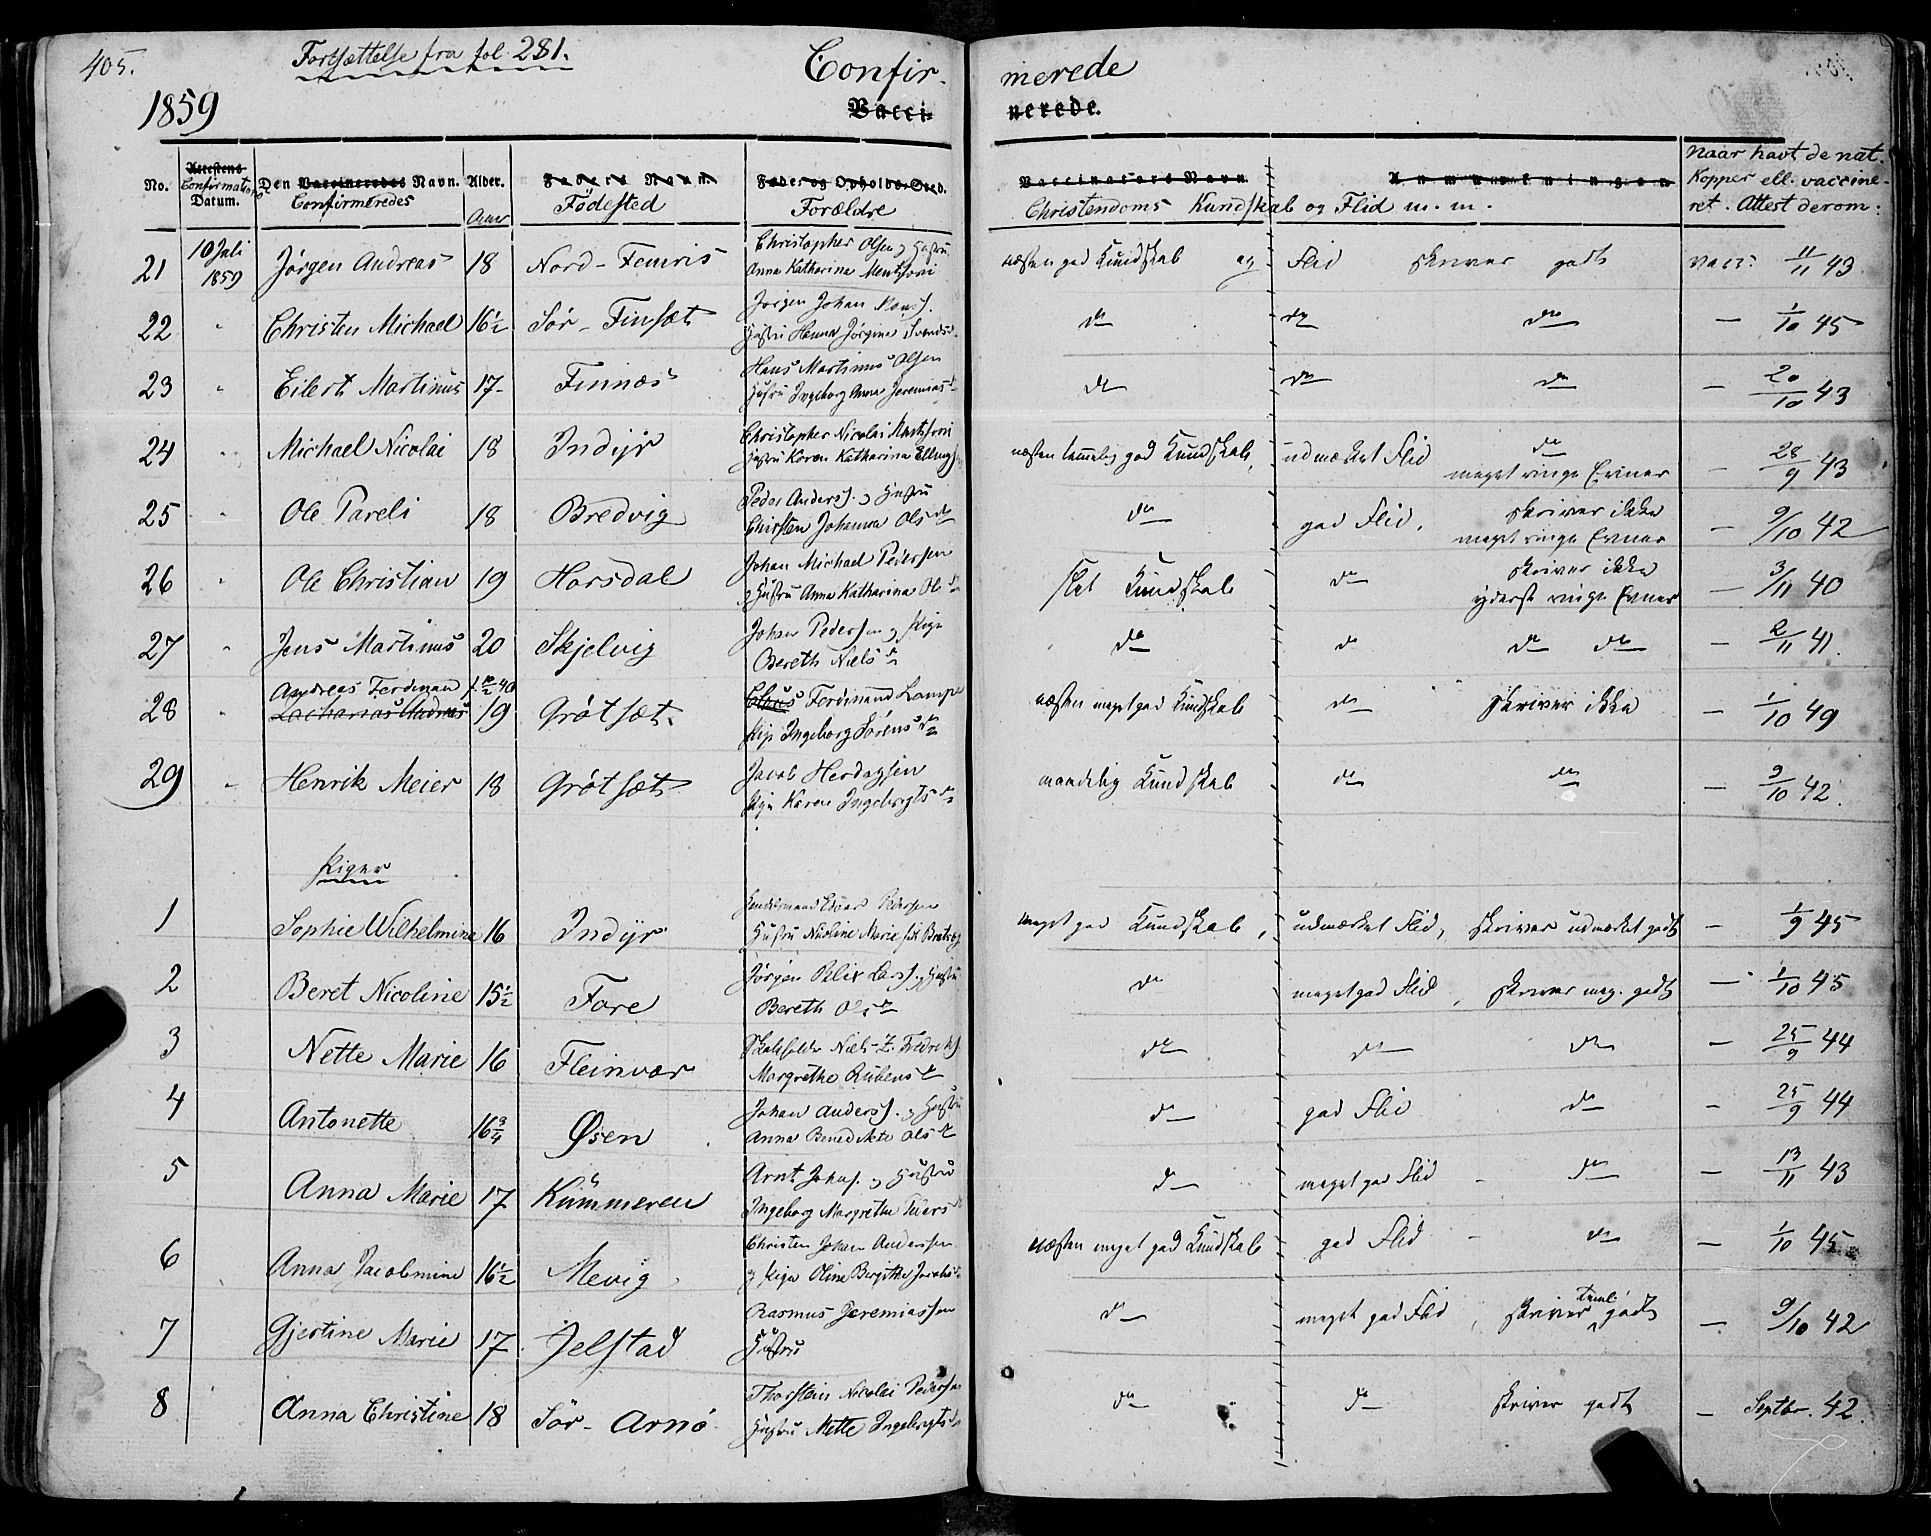 405.
Fortsættelse fra fol. 281.
Confir- merede
1859
Vacci- nerede.
No. Attestens Confirmations Datum. Den Vaccineredes Navn. Confirmeredes Alder. Aar Faders Navn. Fødested Føde- og Opholds-Sted. Forældre Vaccinators Navn Anmærkninger Christendoms Kundskab og Flid m. m. Naar havt de nat. Kopper ell. vaccineret. Attest derom.
21 10 Juli 1859 Jørgen Andreas 18 Nord-Femris Christopher Olsen og Hustru Anna Katharina næsten god Kundskab og Flid skriver godt vacc: 11/11 43
22 " Christen Michael 16½ Sør-Finsæt Jørgen Johan Hustru Hanna Jørgine do do do — 1/10 45
23 " Eilert Martinus 17- Finnæs Hans Martinus Olsen Hustru Ingeborg Anna Jeremiasd. do do do — 20/10 43
24 " Michael Nicolai 18 Indyr Christopher Nicolai Hustru Karen Katharina næsten temmelig god Kundskab, udmærket Flid do meget ringe Evner — 28/9 43
25 " Ole Pareli 18 Bredvig Peder Anderss. og Hustru Chirsten Johanna Olsdr do god Flid, skriver ikke meget ringe Evner — 9/10 42
26 " Ole Christian 19 Horsdal Johan Michael Pedersen og Hustru Anna Katharina slet Kundskab do skriver ikke yderst ringe Evner — 3/11 40
27 " Jens Martinus 20 Skjelvig Johan Pedersen og Pige Bereth Nielsdr do do do do — 2/11 41.
28 " Andreas Ferdinan Zacharias Andreas 19 Grøtsæt. Claus Ferdinand Lampe Pige Ingeborg Sørensdr næsten meget god Kundskab do skriver ikke — 1/10 49
29 " Henrik Meier 18 Grøtsæt Jacob Herdagsen Pige Karen Ingebrigtsdr maadelig Kundskab do do — 9/10 42.
Piger
1 Sophie Wilhelmine 16 Indyr Handelsmand Edvard Pedersen Hustru Nicoline Marie født meget god Kundskab, udmærket Flid, skriver udmærket godt — 1/9 45
2 Beret Nicoline 15½ Fore Jørgen Larss. og Hustru Bereth Olsdr do meget god Flid, skriver meg. godt — 1/10 45
3 Nette Marie 16 Fleinvær Niels Z. Fredriks. Margrethe Rubensdr do do do — 25/9 44
4 Antonette 16¾ Øsen Johan Anderss. og Hustru Anna Benedikte Olsdr do god Flid do — 25/9 44
5 Anna Marie 17 Kümmeren Arnt Johns. og Hustru Ingeborg Margrethe do meget god Flid - do — 13/11 43
6 Anna Jacobmine 16½ Mevig Christen Johan Andersen og Pige Oline Bergithe næsten meget god Kundskab god Flid - do — 1/10 45
7 Gjertine Marie 17. Jelstad Rasmus Jeremiassen Hustru do meget god Flid, skriver teml. godt — 9/10 42
8 Anna Christine 18 Sör-Arnö Thorstein Nicolai Pedersen Hustru Mette Ingebrigtsdr do do skriver godt — Septbr. 42.